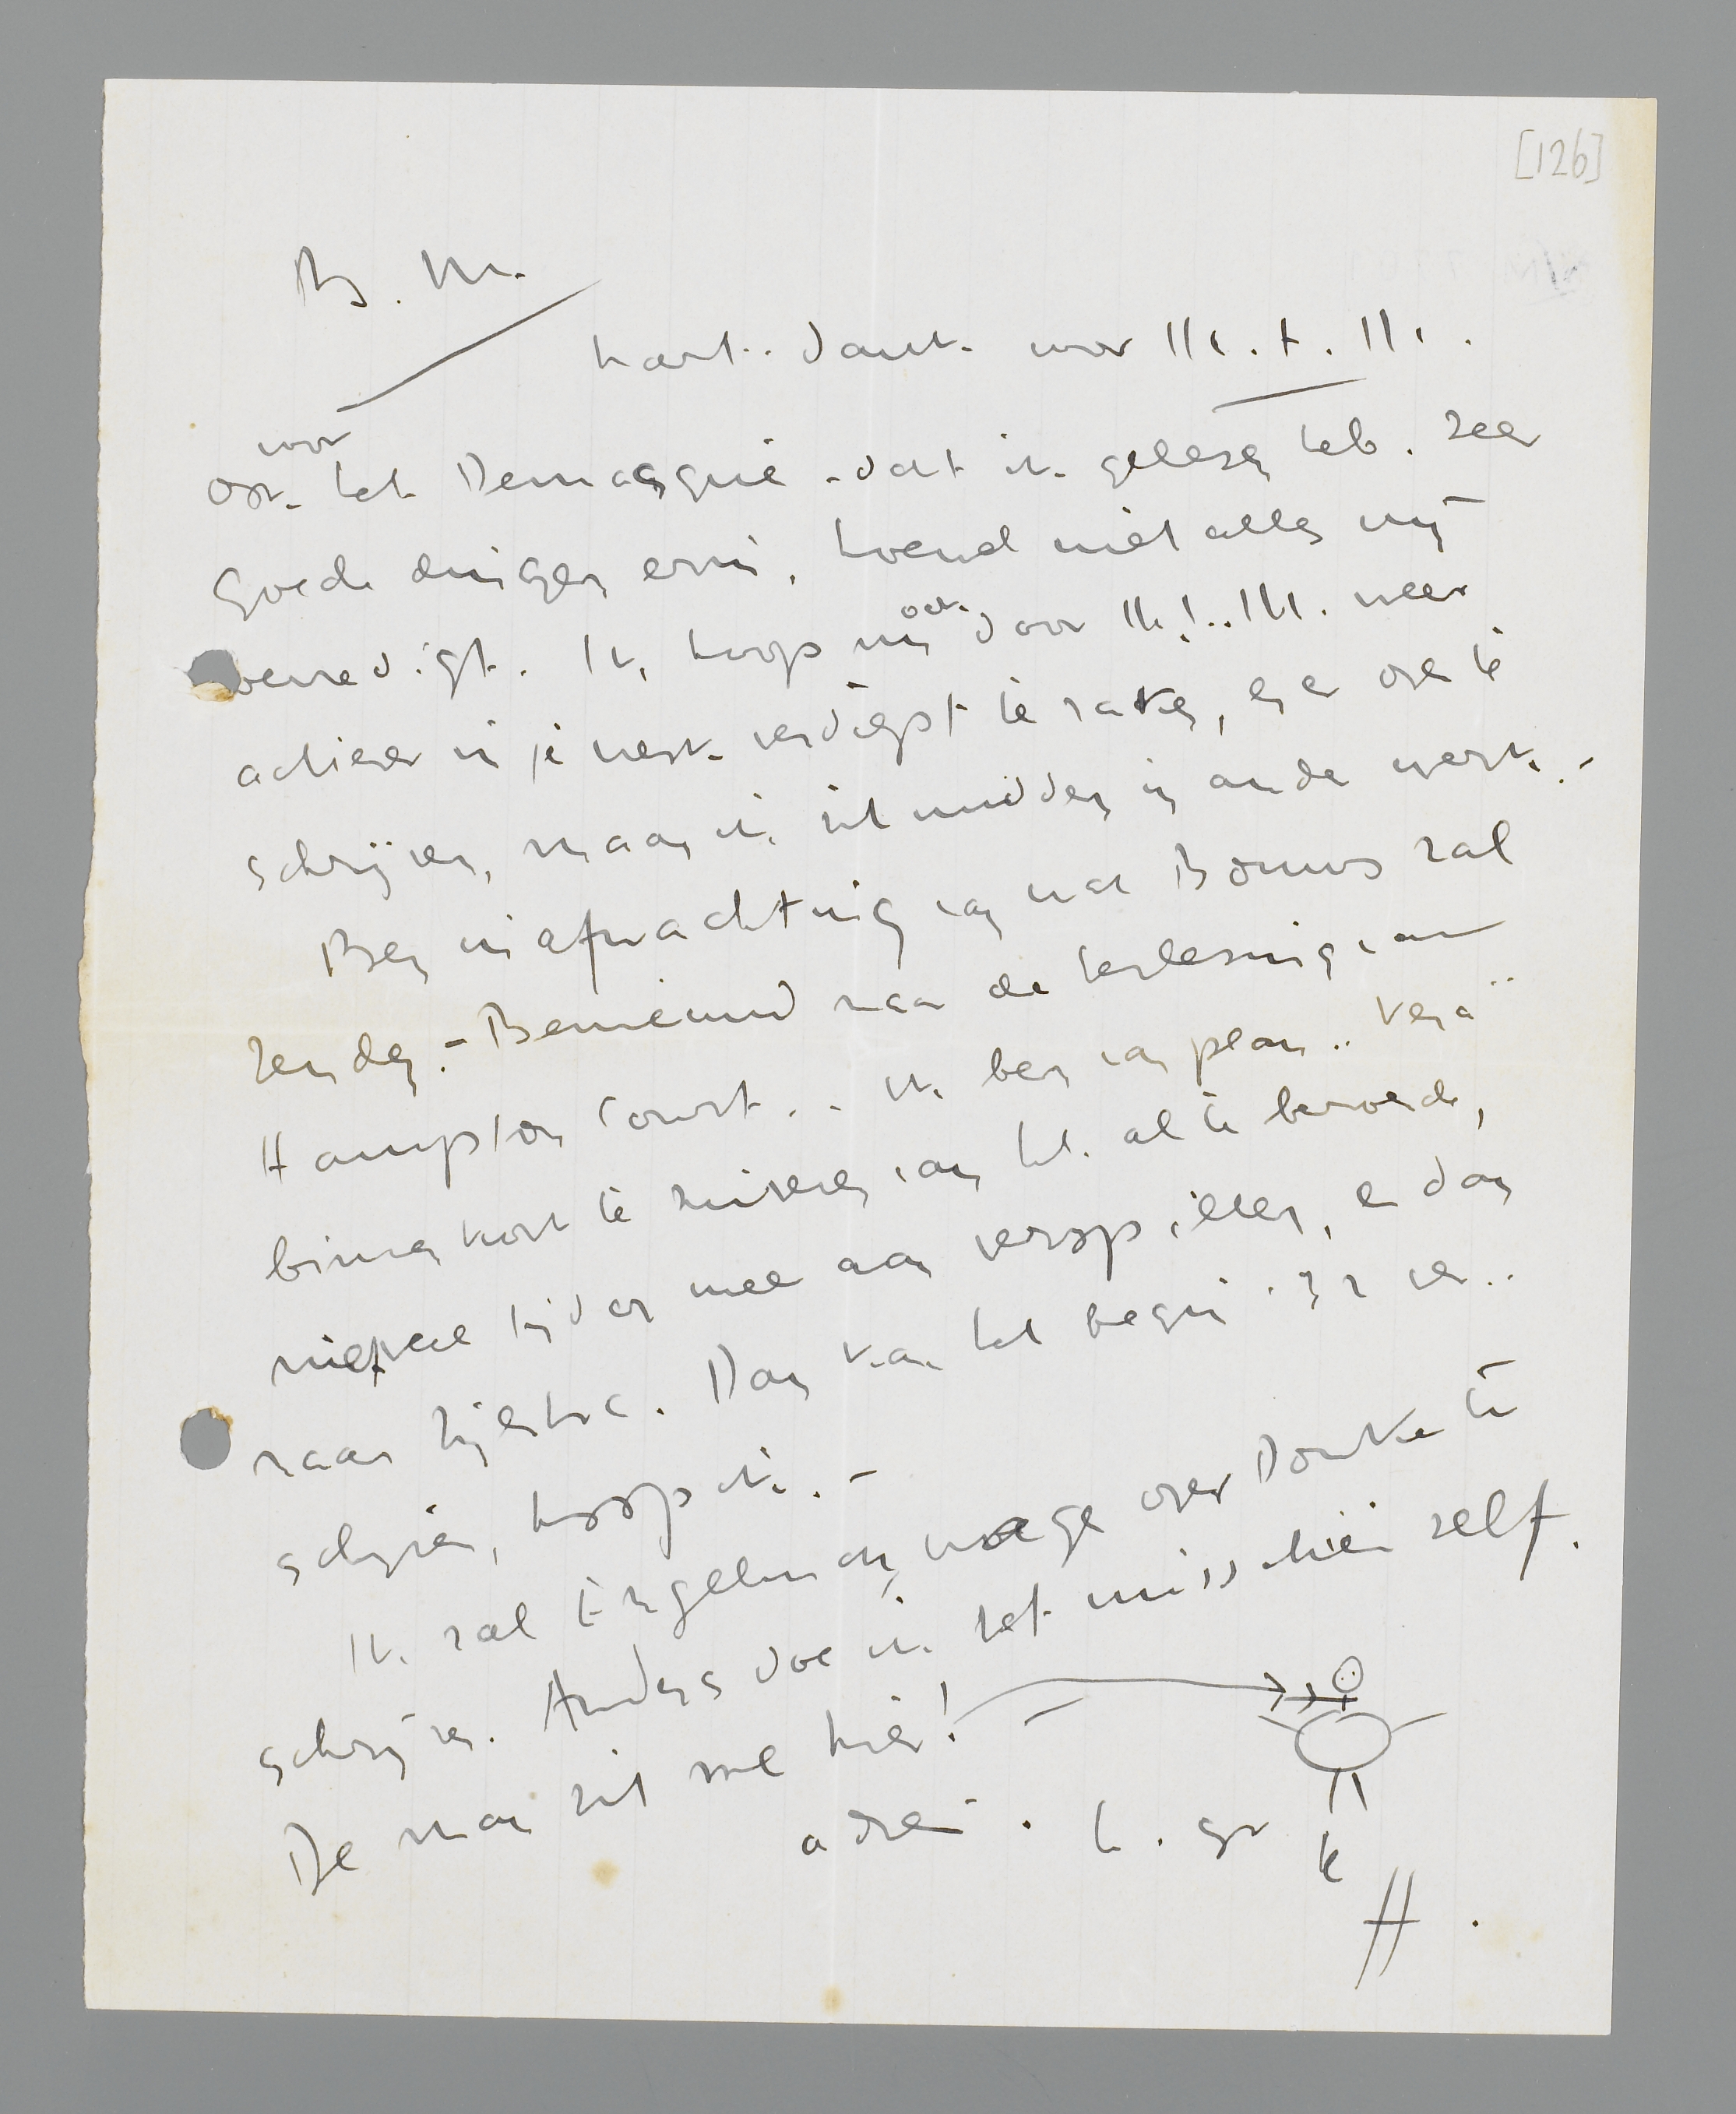 [126]
B. M.
hart. dank voor M. t. M.
voor
ook het Démasqué. dat ik gelezen heb. zeer
goede dingen erin, hoewel niet alles mij
bevredigt. Ik hoop nu ook door M. weer
actiever in je werk verdiept te raken, en er over te
schrijven, maar ik zit midden in ander werk. -
Ben in afwachting van wat Bouws zal
zenden. - Benieuwd naar de herlezing van
Hampton Court. - Ik ben van plan "Vera"
binnenkort te zuiveren van het al te beroerde,
niet veel tijd er mee aan verspillen, en dan
naar Zijlstra. Dan kan het begin '32 ver..
schijnen, hoop ik. -
Ik zal Engelman vragen over Donker te
schrijven. Anders doe ik het misschien zelf.
De man zit me hier!
adieu. h. gr
H.